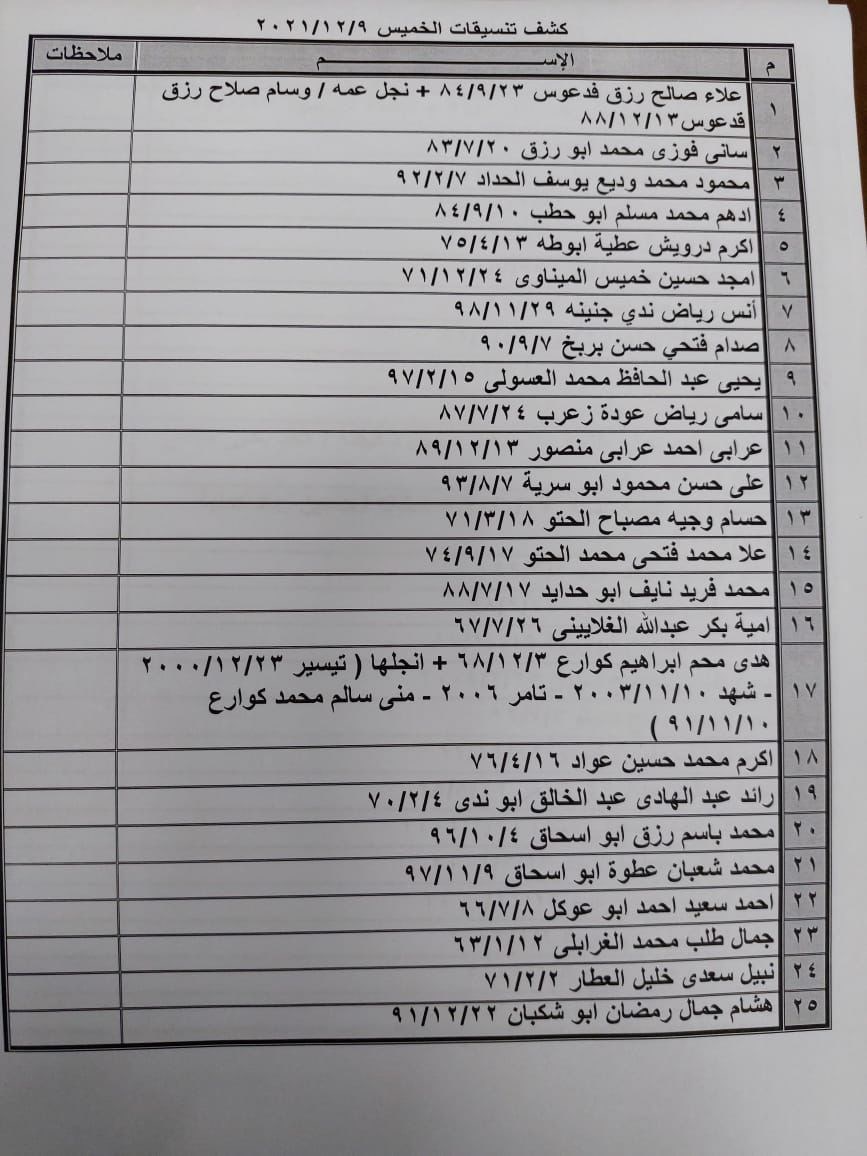 كشف تنسيقات الخميس ٢٠٢١/١٢/٩
م الإســـــــــم ملاحظات
١ علاء صالح رزق فدعوس ٨٤/٩/٢٣ + نجل عمه / وسام صلاح رزق
قدعوس ٨٨/١٢/١٣
٢ سانى فوزى محمد ابو رزق ٨٣/٧/٢٠
٣ محمود محمد وديع يوسف الحداد ٩٢/٢/٧
٤ ادهم محمد مسلم ابو حطب ٨٤/٩/١٠
٥ اكرم درويش عطية ابوطه ٧٥/٤/١٣
٦ امجد حسين خميس الميناوى ٧١/١٢/٢٤
٧ أنس رياض ندي جنينه ٩٨/١١/٢٩
٨ صدام فتحي حسن بربخ ٩٠/٩/٧
٩ يحيى عبد الحافظ محمد العسولى ٩٧/٢/١٥
١٠ سامى رياض عودة زعرب ٨٧/٧/٢٤
١١ عرابى احمد عرابى منصور ٨٩/١٢/١٣
١٢ على حسن محمود ابو سرية ٩٣/٨/٧
١٣ حسام وجيه مصباح الحتو ٧١/٣/١٨
١٤ علا محمد فتحى محمد الحتو ٧٤/٩/١٧
١٥ محمد فريد نايف ابو حدايد ٨٨/٧/١٧
١٦ امية بكر عبدالله الغلايينى ٦٧/٧/٢٦
١٧ هدى محم ابراهيم كوارع ٦٨/١٢/٣ + انجلها ( تيسير ٢٠٠٠/١٢/٢٣
- شهد ٢٠٠٣/١١/١٠ - تامر ٢٠٠٦ - منى سالم محمد كوارع
٩١/١١/١٠ )
١٨ اكرم محمد حسين عواد ٧٦/٤/١٦
١٩ رائد عبد الهادى عبد الخالق ابو ندى ٧٠/٢/٤
٢٠ محمد باسم رزق ابو اسحاق ٩٦/١٠/٤
٢١ محمد شعبان عطوة ابو اسحاق ٩٧/١١/٩
٢٢ احمد سعيد احمد ابو عوكل ٦٦/٧/٨
٢٣ جمال طلب محمد الغرابلى ٦٣/١/١٢
٢٤ نبيل سعدى خليل العطار ٧١/٢/٢
٢٥ هشام جمال رمضان ابو شكبان ٩١/١٢/٢٢